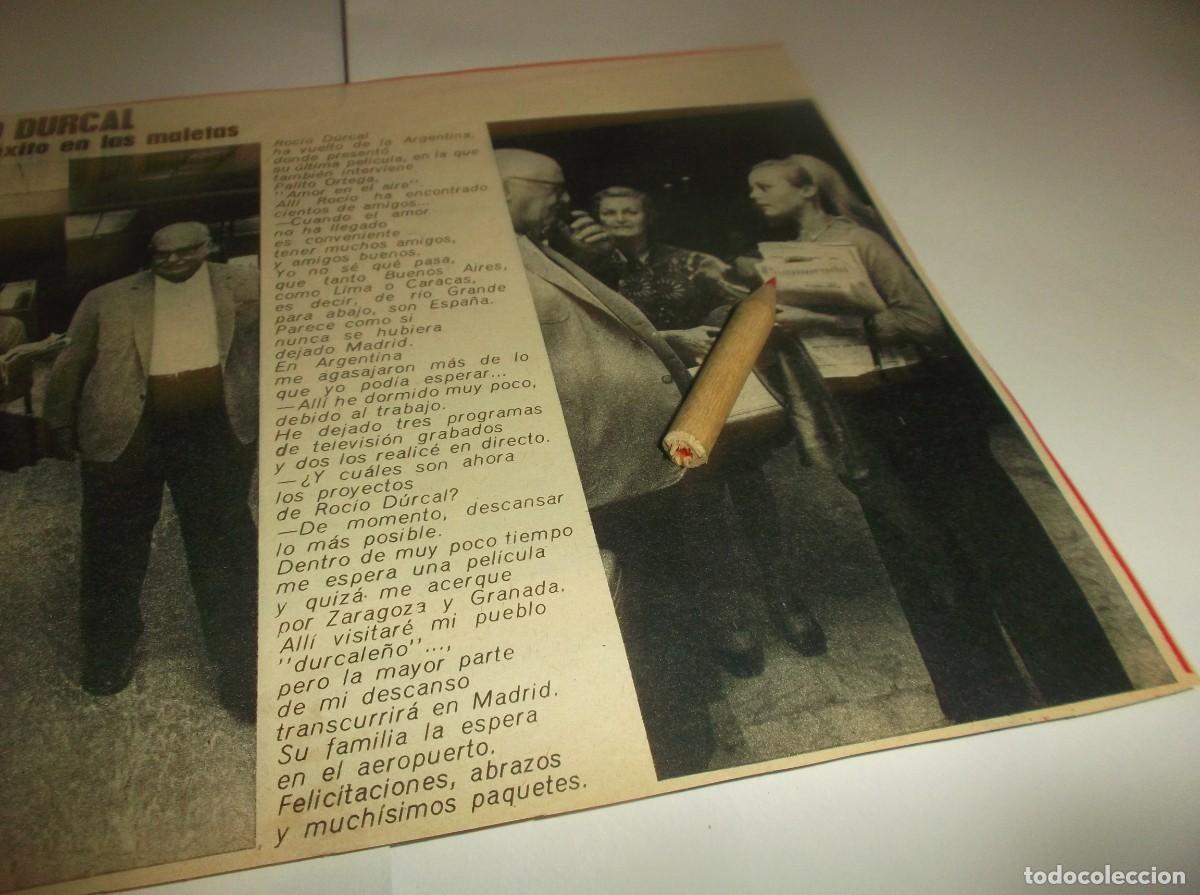 DURCAL
éxito en las maletas
Rocío Dúrcal
ha vuelto de la Argentina,
donde presentó
su última película, en la que
también interviene
Palito Ortega,
"Amor en el aire".
Allí Rocío ha encontrado
cientos de amigos...
—Cuando el amor
no ha llegado
es conveniente
tener muchos amigos,
y amigos buenos.
Yo no sé qué pasa,
que tanto Buenos Aires,
como Lima o Caracas,
es decir, de río Grande
para abajo, son España.
Parece como si
nunca se hubiera
dejado Madrid.
En Argentina
me agasajaron más de lo
que yo podía esperar...
—Allí he dormido muy poco,
debido al trabajo.
He dejado tres programas
de televisión grabados
y dos los realicé en directo.
—¿Y cuáles son ahora
los proyectos
de Rocío Dúrcal?
—De momento, descansar
lo más posible.
Dentro de muy poco tiempo
me espera una película
y quizá me acerque
por Zaragoza y Granada.
Allí visitaré mi pueblo
"durcaleño"...,
pero la mayor parte
de mi descanso
transcurrirá en Madrid.
Su familia la espera
en el aeropuerto.
Felicitaciones, abrazos
y muchísimos paquetes.
todocoleccion